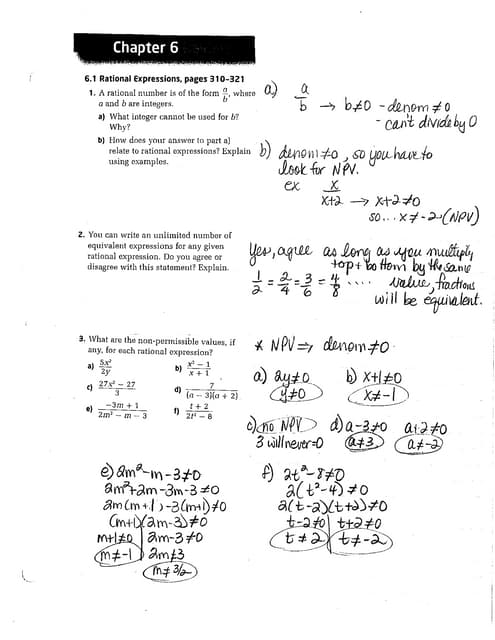 Chapter 6
6.1 Rational Expressions, pages 310-321
1. A rational number is of the form a/b, where
a and b are integers.
a) What integer cannot be used for b?
Why?
b) How does your answer to part a)
relate to rational expressions? Explain
using examples.
a) a/b → b≠0 - denom ≠ 0
- can't divide by 0
b) denom ≠ 0, so you have to
look for NPV.
ex x/(x+2) → x+2≠0
so... x ≠ -2 (NPV)
2. You can write an unlimited number of
equivalent expressions for any given
rational expression. Do you agree or
disagree with this statement? Explain.
Yes, agree as long as you multiply
top + bottom by the same
1/2 = 2/4 = 3/6 = 4/8 .... value, fractions
will be equivalent.
3. What are the non-permissible values, if
any, for each rational expression?
a) 5x²/2y b) (x² − 1)/(x + 1)
c) (27x² − 27)/3 d) 7/((a − 3)(a + 2))
e) (−3m + 1)/(2m² − m − 3) f) (t + 2)/(2t² − 8)
* NPV ⇒ denom ≠ 0
a) 2y≠0 b) x+1≠0
y≠0 x≠-1
c) no NPV d) a-3≠0 a+2≠0
3 will never = 0 a≠3 a≠-2
e) 2m²-m-3≠0
2m²+2m-3m-3≠0
2m(m+1)-3(m+1)≠0
(m+1)(2m-3)≠0
m+1≠0 2m-3≠0
m≠-1 2m≠3
m≠3/2
f) 2t²-8≠0
2(t²-4)≠0
2(t-2)(t+2)≠0
t-2≠0 t+2≠0
t≠2 t≠-2